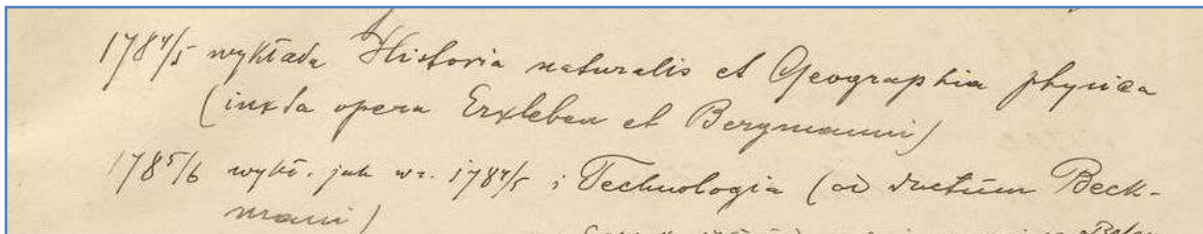 1784/5 wykłada Historia naturalis et Geographia physica
(iuxta opera Erxleben et Bergmanni)
1785/6 wykł. jak w r. 1784/5 i Technologia (ad ductum Beck-
manni)